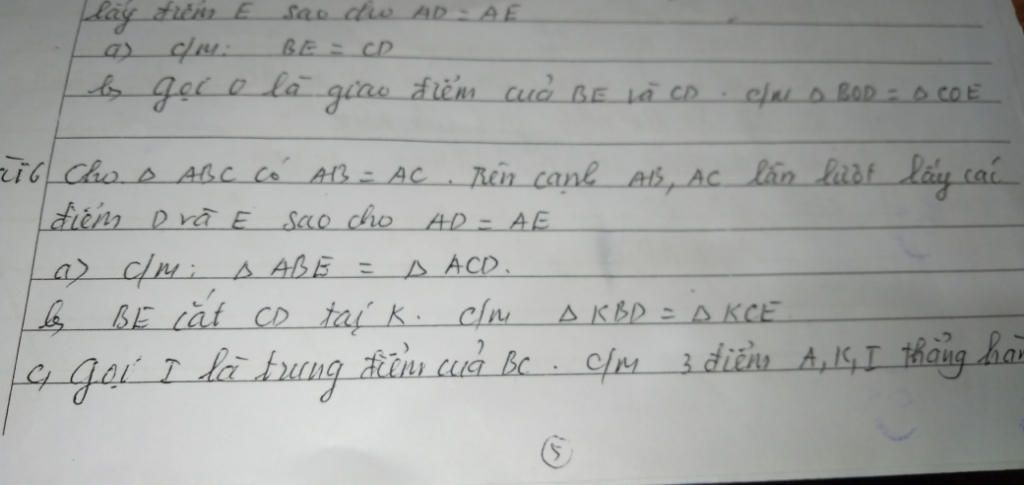 lấy điểm E sao cho AD = AE
a) c/m: BE = CD
b, gọi O là giao điểm cuả BE và CD. c/m △ BOD = △ COE
Cho △ ABC có AB = AC. Trên cạnh AB, AC lần lượt lấy các
điểm D và E sao cho AD = AE
a) c/m: △ ABE = △ ACD.
b, BE cắt CD tại K. c/m △ KBD = △ KCE
c, gọi I là trung điểm cuả BC. c/m 3 điểm A, K, I thẳng hàn
5